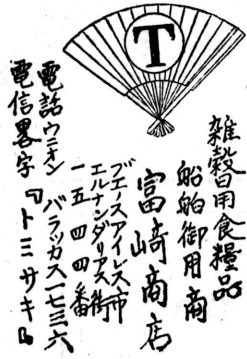 T
雑穀日用食糧品
船舶御用商
富崎商店
ブエースアイレス市
エルナンダリアス街
一五四四番
電話ウニオン バラッカス一七三六
電信畧字『トミサキ』